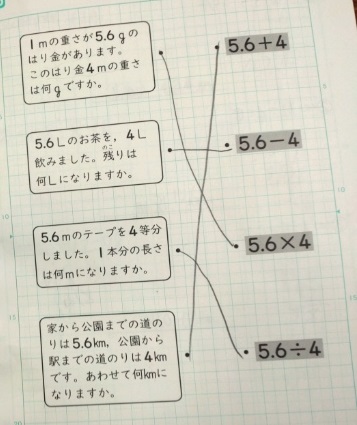 1mの重さが5.6gの
はり金があります。
このはり金4mの重さ
は何gですか。
5.6+4
5.6Lのお茶を，4L
飲みました。残りは
のこ
何Lになりますか。
5.6−4
5.6mのテープを4等分
しました。1本分の長さ
は何mになりますか。
5.6×4
家から公園までの道の
りは5.6km，公園から
駅までの道のりは4km
です。あわせて何kmに
なりますか。
5.6÷4
10
15
10
15